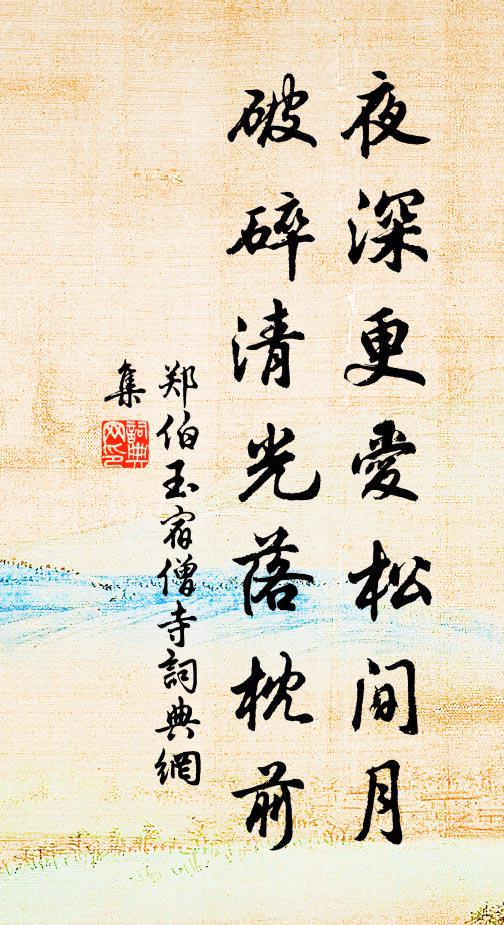 夜深更爱松间月
破碎清光落枕前
郑伯玉宿僧寺詞典網
集
詞典网印